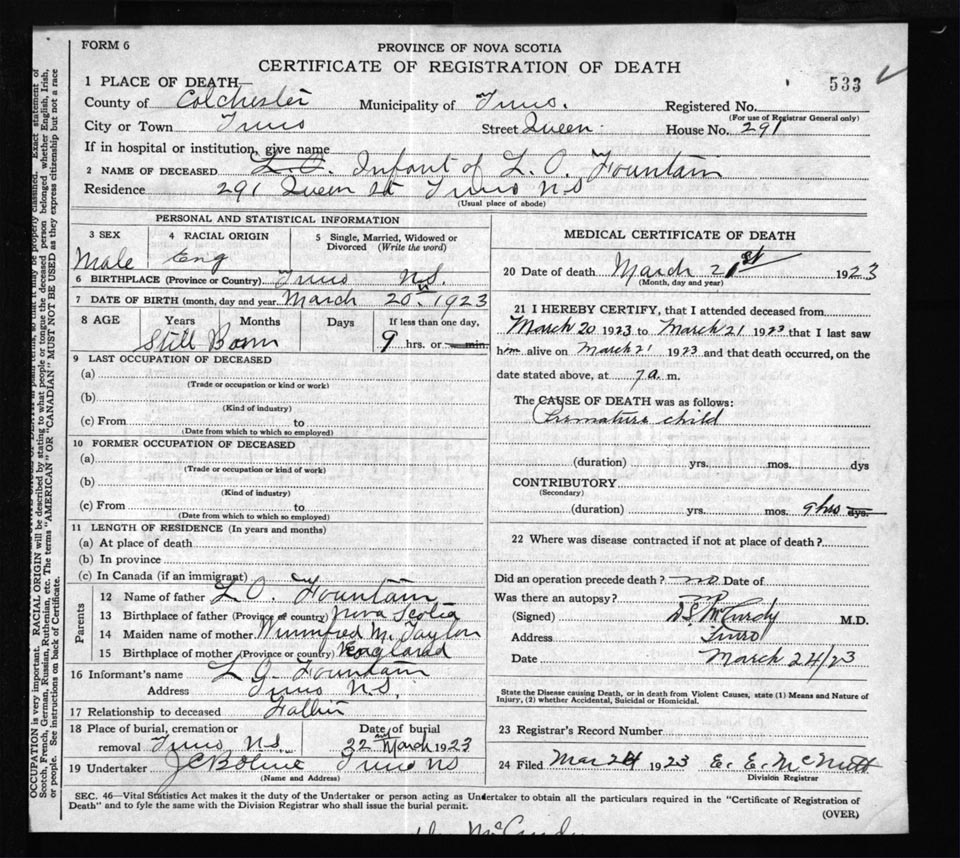 FORM 6
PROVINCE OF NOVA SCOTIA
CERTIFICATE OF REGISTRATION OF DEATH
533
1 PLACE OF DEATH—
County of Colchester Municipality of Truro. Registered No.
(For use of Registrar General only)
City or Town Truro Street Queen House No. 291
If in hospital or institution, give name
2 NAME OF DECEASED L. O. Infant of L. O. Fountain
Residence 291 Queen St Truro N.S
(Usual place of abode)
PERSONAL AND STATISTICAL INFORMATION
3 SEX 4 RACIAL ORIGIN 5 Single, Married, Widowed or Divorced (Write the word)
Male Eng
6 BIRTHPLACE (Province or Country) Truro N.S.
7 DATE OF BIRTH (month, day and year) March 20 1923
8 AGE Years Months Days If less than one day,
Still Born 9 hrs. or min.
9 LAST OCCUPATION OF DECEASED
(a)
(Trade or occupation or kind or work)
(b)
(Kind of industry)
(c) From to
(Date from which to which so employed)
10 FORMER OCCUPATION OF DECEASED
(a)
(Trade or occupation or kind of work)
(b)
(Kind of industry)
(c) From to
(Date from which to which so employed)
11 LENGTH OF RESIDENCE (In years and months)
(a) At place of death
(b) In province
(c) In Canada (if an immigrant)
Parents
12 Name of father L O. Fountain
13 Birthplace of father (Province or country) Nova Scotia
14 Maiden name of mother Winnifred M. Taylor
15 Birthplace of mother (Province or country) England
16 Informant's name L O. Fountain
Address Truro N.S.
17 Relationship to deceased Father
18 Place of burial, cremation or removal Truro N.S. Date of burial 22 March 1923
19 Undertaker Truro N S
(Name and Address)
MEDICAL CERTIFICATE OF DEATH
20 Date of death March 21st 1923
(Month, day and year)
21 I HEREBY CERTIFY, that I attended deceased from
March 20 1923 to March 21 1923 that I last saw
him alive on March 21 1923 and that death occurred, on the
date stated above, at 7 a. m.
The CAUSE OF DEATH was as follows:
Premature child
(duration) yrs. mos. dys
CONTRIBUTORY
(Secondary)
(duration) yrs. mos. 9 hrs dys.
22 Where was disease contracted if not at place of death?
Did an operation precede death? no Date of
Was there an autopsy? no
(Signed) McCurdy M.D.
Address Truro
Date March 24/23
State the Disease causing Death, or in death from Violent Causes, state (1) Means and Nature of
Injury, (2) whether Accidental, Suicidal or Homicidal.
23 Registrar's Record Number
24 Filed Mar 24 1923 E. E. McNutt
Division Registrar
SEC. 46—Vital Statistics Act makes it the duty of the Undertaker or person acting as Undertaker to obtain all the particulars required in the "Certificate of Registration of
Death" and to fyle the same with the Division Registrar who shall issue the burial permit.
(OVER)
OCCUPATION is very important. RACIAL ORIGIN will be described by stating to what people or tongue the deceased person belonged, whether English, Irish,
Scotch, French, German, Russian, Ruthenian, etc. The terms "AMERICAN" OR "CANADIAN" MUST NOT BE USED as they express citizenship but not a race
or people. See instructions on back of Certificate.